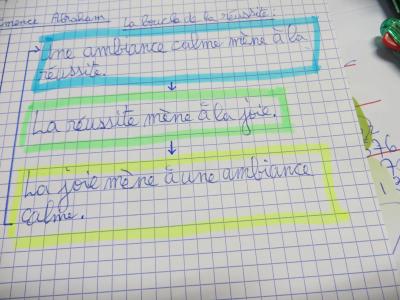 Abraham. La boucle de la réussite :
Une ambiance calme mène à la
réussite.
La réussite mène à la joie.
La joie mène à une ambiance
calme.
76